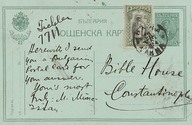 БЪЛГАРИЯ
ПОЩЕНСКА КАРТА
Herewith I send
you a Bulgarian
Postal Card for
your answer.
Your's most
truly. M. Mina-
sian
Bible House
Constantinople